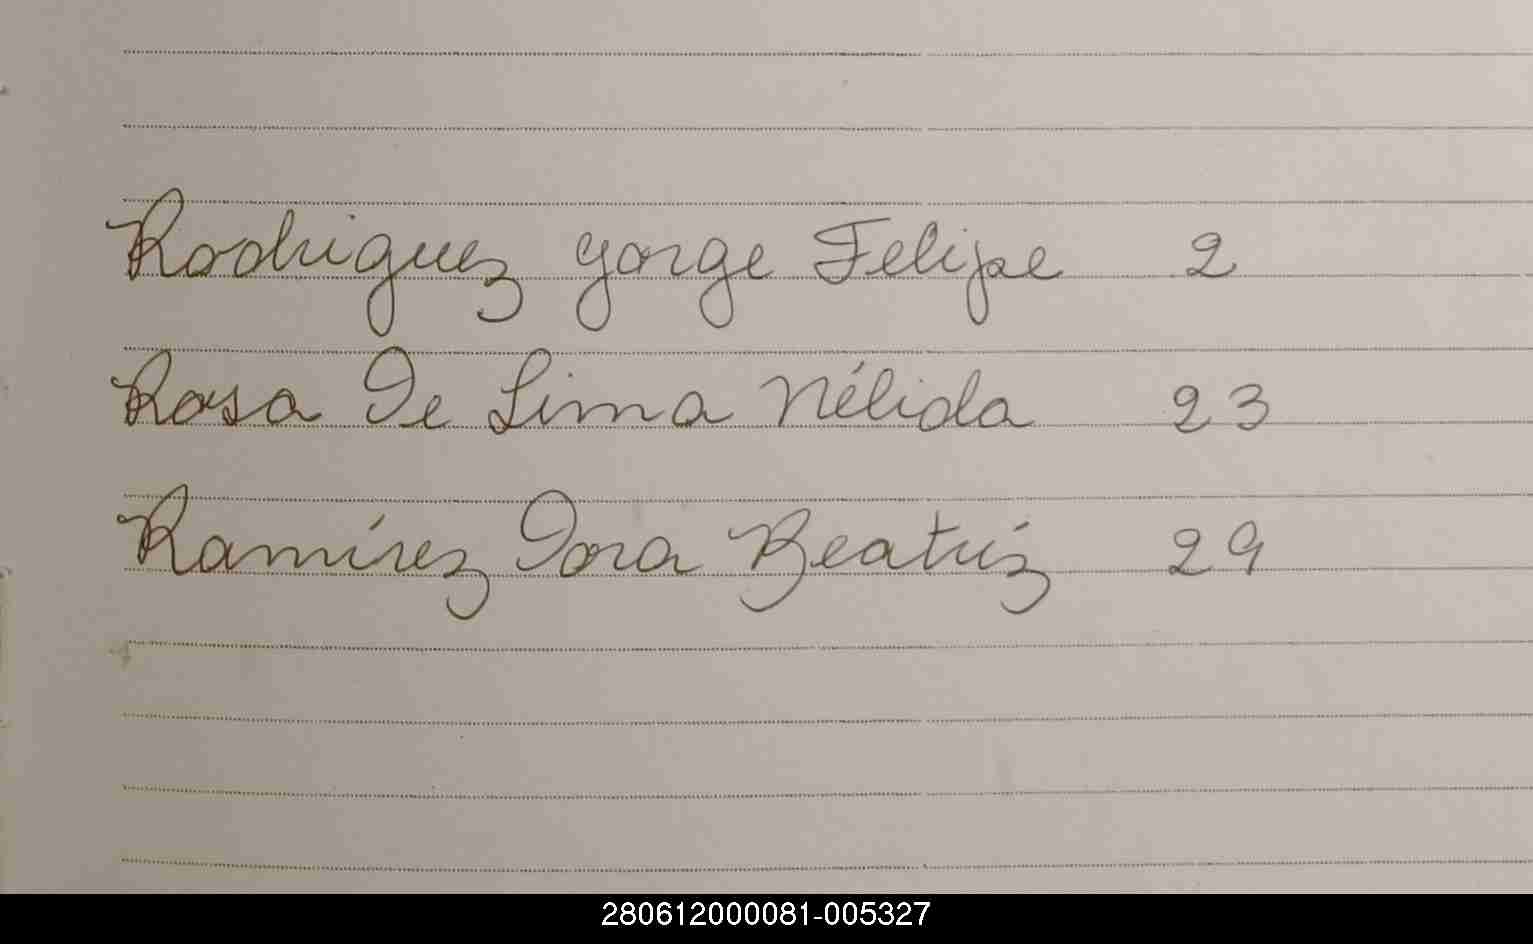 Rodriguez Jorge Felipe 2
Rosa De Lima Nélida 23
Ramírez Dora Beatríz 29
280612000081-005327